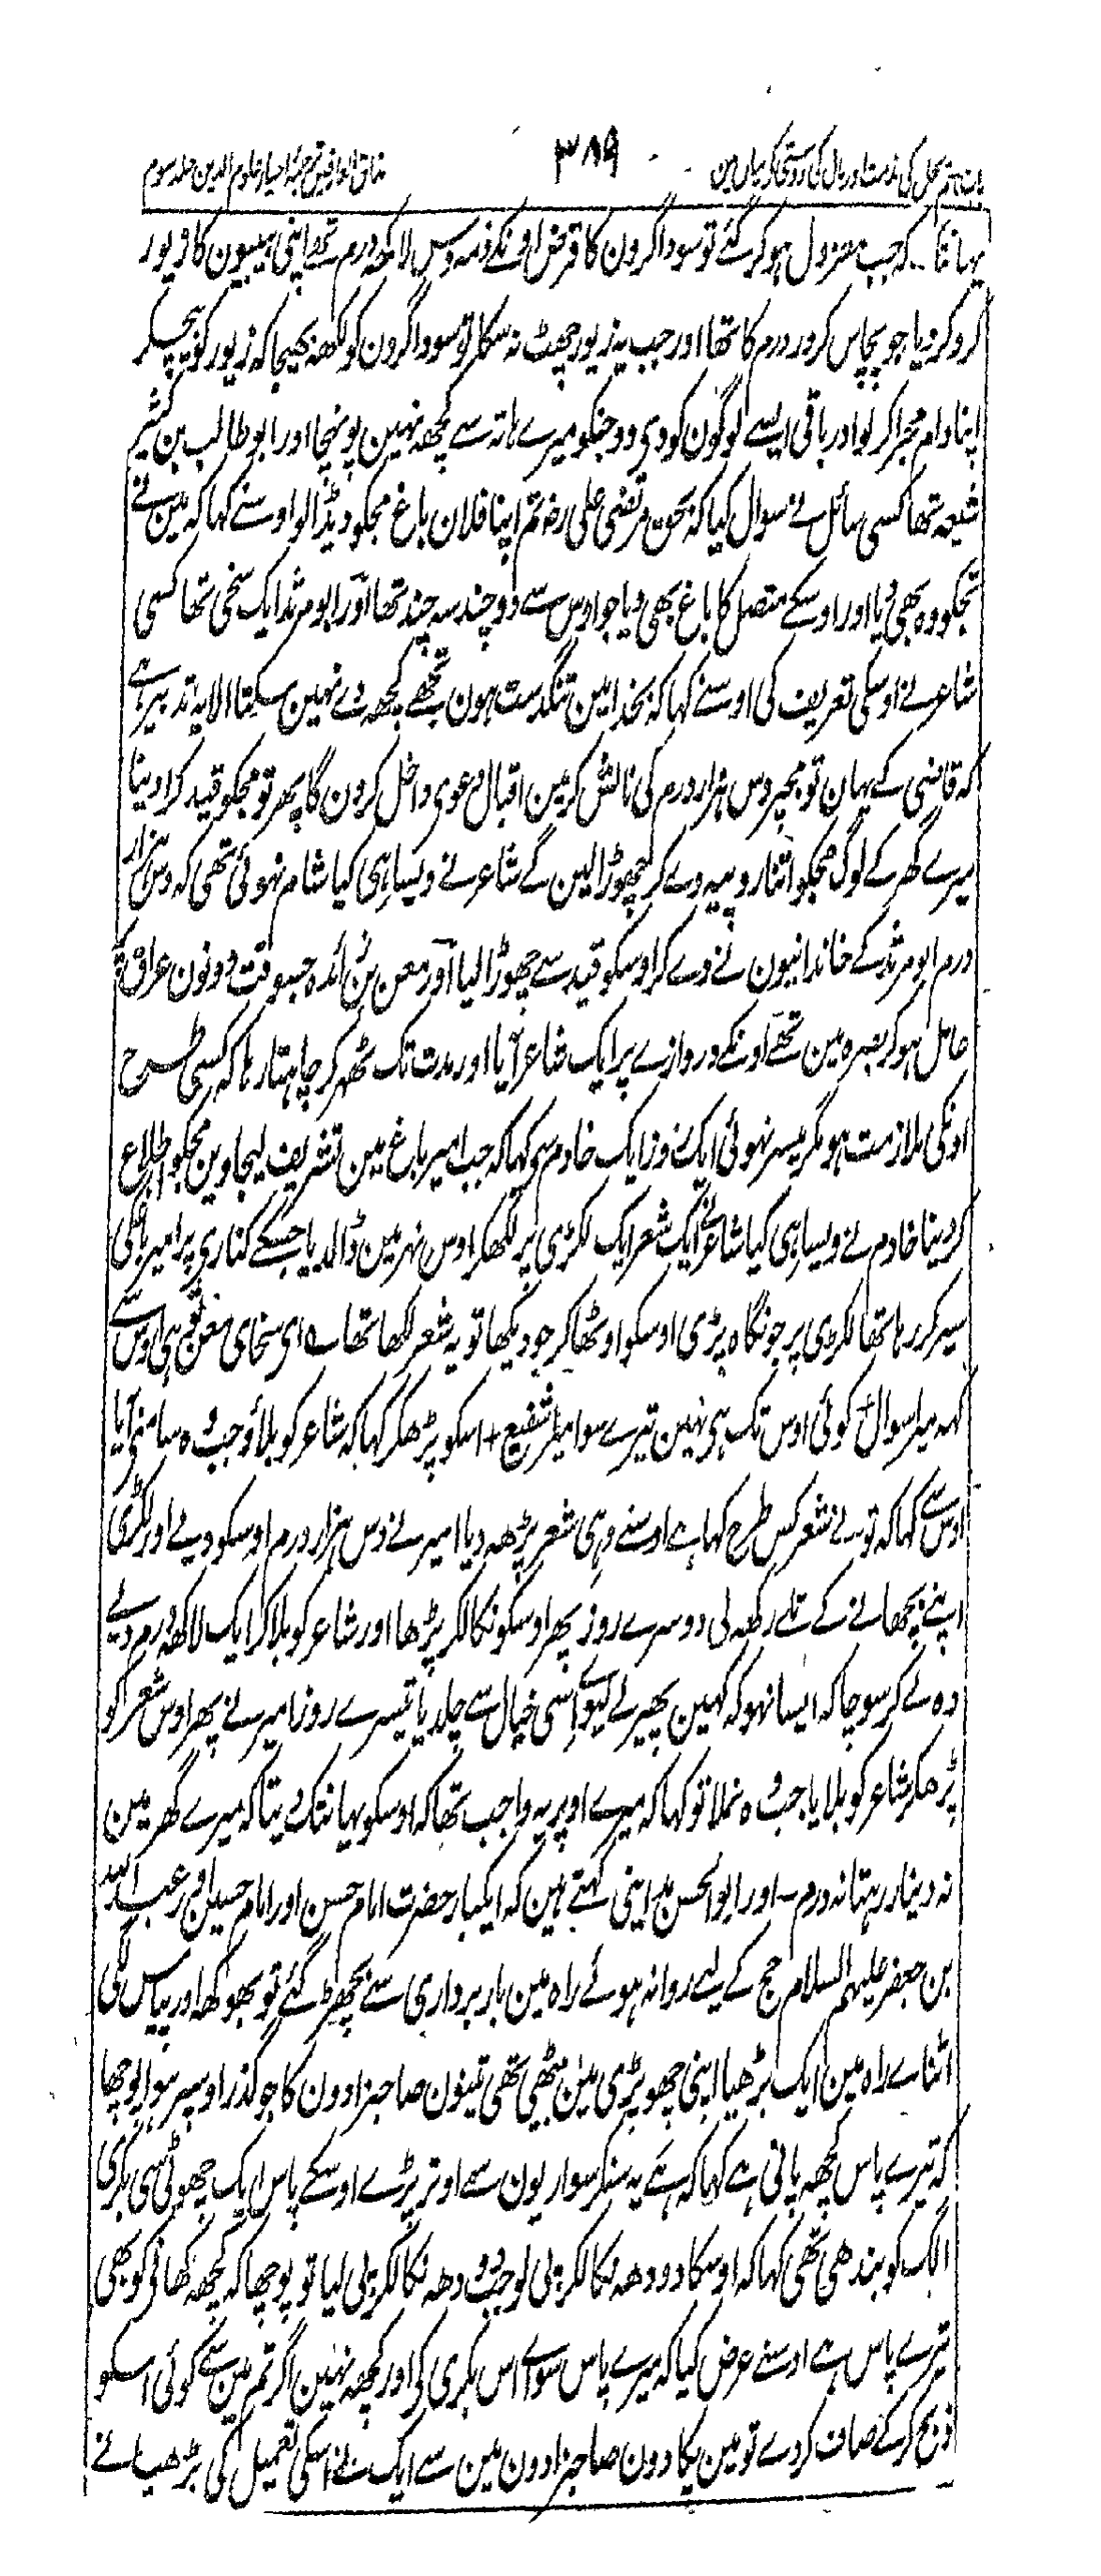 باب ہفتم بخل کی مذمت اور مال کی دوستی کے بیان مین ۳۸۹ مذاق العارفین ترجمہ احیاء علوم الدین جلد سوم
یہانتک کہ جب معزول ہوکر گئے تو سوداگرون کا قرض اونکے ذمہ دس لاکھ درم تھے اپنی بیبیون کا زیور
گرو کردیا جو پچاس کرور درم کا تھا اور جب یہ زیور چھٹ نہ سکا تو سوداگرون کو لکھ بھیجا کہ زیور کو بیچکر
اپنا دام مجرا کرلو اور باقی ایسے لوگون کو دی دو جنکو میرے ہاتہ سے کچھ نہین پونہچا اور ابو طالب بن کثیر
شیعہ تھا کسی سائل نے سوال کیا کہ بحق مرتضی علی رض تم اپنا فلان باغ مجکو دیڈالو اوسنے کہا کہ مین نے
تجکو وہ بھی دیا اور اوسکے متصل کا باغ بھی دیا جو اوس سے دوچند سہ چند تھا اور ابو مرثد ایک سخی تھا کسی
شاعر نے اوسکی تعریف کی اوسنے کہا کہ بخدا مین تنگدست ہون تجھے کچھ دے نہین سکتا الا یہ تدبیر ہے
کہ قاضی کے یہان تو مجپر دس ہزار درم کی نالش کر مین اقبال دعوی داخل کرون گا پھر تو مجکو قید کرا دینا
میرے گھر کے لوگ مجکو اتنا روپیہ دے کر چھوڑا لین گے شاعر نے ویسا ہی کیا شام نہوئی تھی کہ دس ہزار
درم ابو مرثد کے خاندانیون نے دے کر اوسکو قید سے چھوڑا لیا اور معن بن زائدہ جسوقت دونون عراق کے
عامل ہوکر بصرہ مین تھے اونکے دروازے پر ایک شاعر آیا اور مدت تک ٹھہر کر چاہتا رہا کہ کسی طرح
اونکی ملازمت ہو مگر میسر نہوئی ایک روز ایک خادم سی کہا کہ جب امیر باغ مین تشریف لیجاوین مجکو اطلاع
کردینا خادم نے ویسا ہی کیا شاعر نے ایک شعر ایک لکڑی پر لکھکر اوس نہر مین ڈالدیا جسکے کناری پر امیر باغ کی
سیر کر رہا تھا لکڑی پر جو نگاہ پڑی اوسکو اوٹھا کر جو دیکھا تو یہ شعر لکھا تھا ؎ ای سخای معن تو ہی اوس سے
کہہ میرا سوال + کوئی اوس تک ہی نہین تیرے سوا میرا شفیع + اسکو پڑھکر کہا کہ شاعر کو بلاؤ جب وہ سامنے آیا
اوس سے کہا کہ تو نے شعر کس طرح کہا ہے اوسنے وہی شعر پڑھ دیا امیر نے دس ہزار درم اوسکو دیے اور لکڑی
اپنے بچھانے کے تلے رکھ لی دوسرے روز پھر اوسکو نکالکر پڑھا اور شاعر کو بلا کر ایک لاکھ درم دیے
وہ لے کر سوچا کہ ایسا نہو کہ کہین پھیر لے لیوے اسی خیال سے چلدیا تیسرے روز امیر نے پھر اوس شعر کو
پڑھکر شاعر کو بلایا جب وہ نملا تو کہا کہ میرے اوپر یہ واجب تھا کہ اوسکو یہانتک دیتا کہ میرے گھر مین
نہ دینار رہتا نہ درم - اور ابو الحسن مداینی کہتے ہین کہ ایکبار حضرت امام حسن اور امام حسین اور عبد اللہ
بن جعفر علیہم السلام حج کے لیے روانہ ہوئے راہ مین باربرداری سے بچھڑ گئے تو بھوکھ اور پیاس لگی
اثنائے راہ مین ایک بڑھیا اپنی جھوپڑی مین بیٹھی تھی تینون صاحبزادون کا جو گذر اوسپر ہوا پوچھا
کہ تیرے پاس کچھ پانی ہے کہا کہ ہے یہ سنکر سواریون سے اوتر پڑے اوسکے پاس ایک چھوٹی سی بکری
الگ کو بندھی تھی کہا کہ اوسکا دودھ نکالکر پی لو جب دودھ نکالکر پی لیا تو پوچھا کہ کچھ کھانیکو بھی
تیرے پاس ہے اوسنے عرض کیا کہ میرے پاس سوائے اس بکری کی اور کچھ نہین اگر تم مین سے کوئی اسکو
ذبح کرکے صاف کردے تو مین پکا دون صاحبزادون مین سے ایک نے اسکی تعمیل کی بڑھیا نے